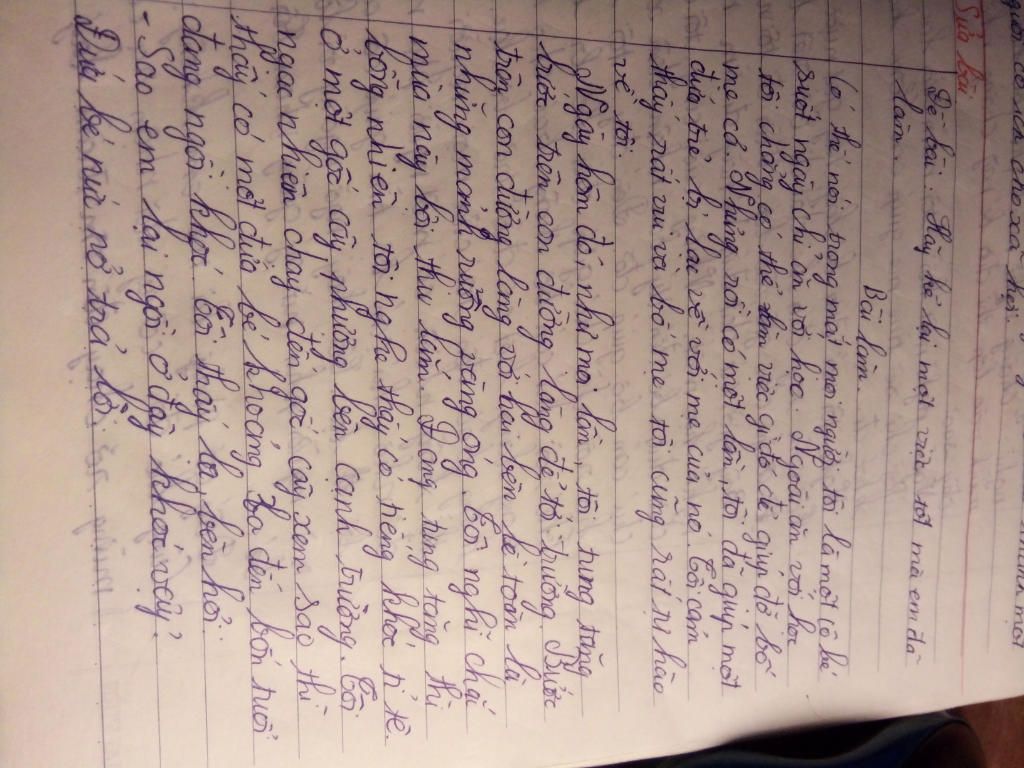 Sửa bài
Đề bài: Hãy kể lại một việc tốt mà em đã
làm.
Bài làm
Có thể nói trong mắt mọi người tôi là một cô bé
suốt ngày chỉ ăn với học. Ngoài ăn với học
tôi chẳng có thể làm việc gì đó để giúp đỡ bố
mẹ cả. Nhưng rồi có một lần, tôi đã giúp một
đứa trẻ bị lạc về với mẹ của nó. Tôi cảm
thấy rất vui và bố mẹ tôi cũng rất tự hào
về tôi.
Ngày hôm đó như mọi lần, tôi tung tăng
bước trên con đường làng để tới trường. Bước
trên con đường làng với hai bên lề toàn là
những mảnh ruộng vàng óng. Tôi nghĩ chắc
mùa này bội thu lắm. Đang tung tăng thì
bỗng nhiên tôi nghe thấy có tiếng khóc tỉ tê
ở một gốc cây nhường bên cạnh trường. Tôi
ngạc nhiên chạy đến gốc cây xem sao thì
thấy có một đứa bé khoảng ba đến bốn tuổi
đang ngồi khóc. Tôi thấy lạ, bèn hỏi:
- Sao em lại ngồi ở đây khóc vậy?
Đứa bé nức nở trả lời: